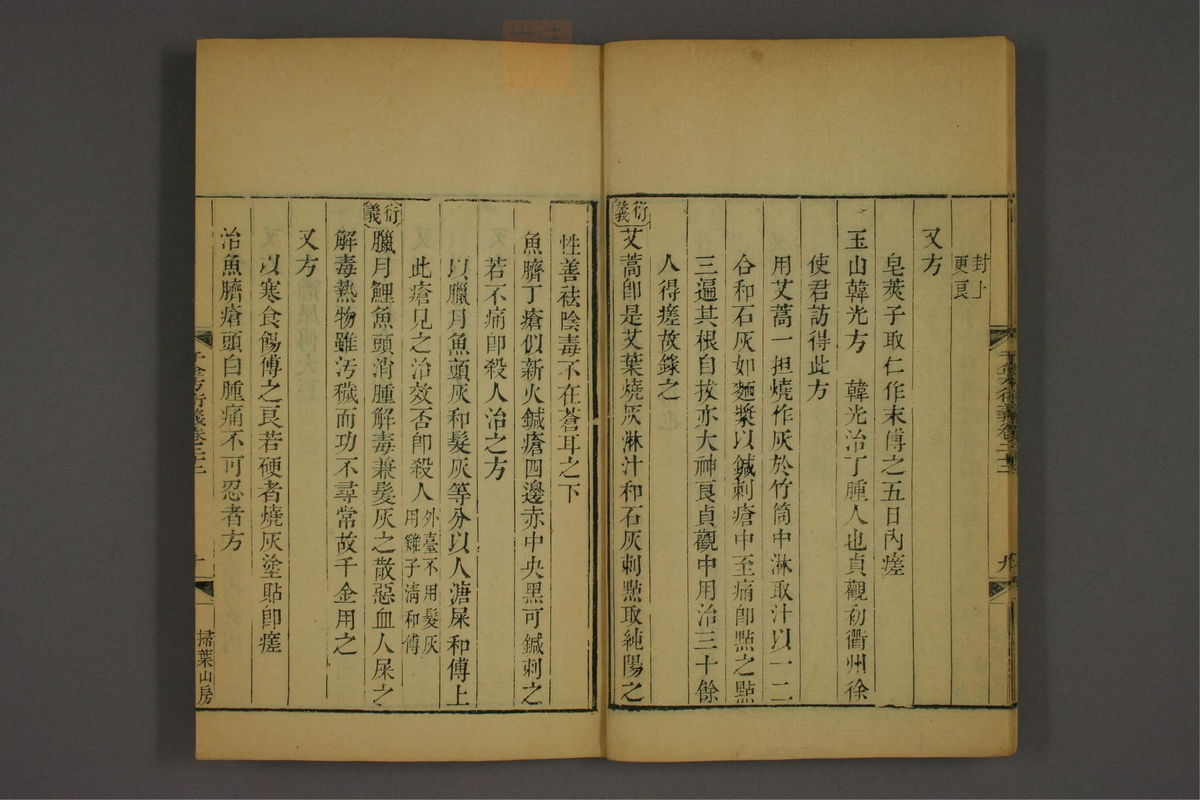 封上
更良
又方
皂莢子取仁作末傅之五日內瘥
玉山韓光方　韓光治丁腫人也貞觀初衢州徐
使君訪得此方
用艾蒿一担燒作灰於竹筒中淋取汁以一二
合和石灰如麵漿以鍼刺瘡中至痛卽點之點
三遍其根自拔亦大神良貞觀中用治三十餘
人得瘥故錄之
衍義
艾蒿卽是艾葉燒灰淋汁和石灰刺點取純陽之
性善祛陰毒不在蒼耳之下
魚臍丁瘡似新火鍼瘡四邊赤中央黑可鍼刺之
若不痛卽殺人治之方
以臘月魚頭灰和髮灰等分以人溏屎和傅上
此瘡見之治效否卽殺人外臺不用髮灰
用雞子淸和傅
衍義
臘月鯉魚頭消腫解毒兼髮灰之散惡血人屎之
解毒熱物雖汚穢而功不尋常故千金用之
又方
以寒食餳傅之良若硬者燒灰塗貼卽瘥
治魚臍瘡頭白腫痛不可忍者方
千金方衍義卷二十二
掃葉山房